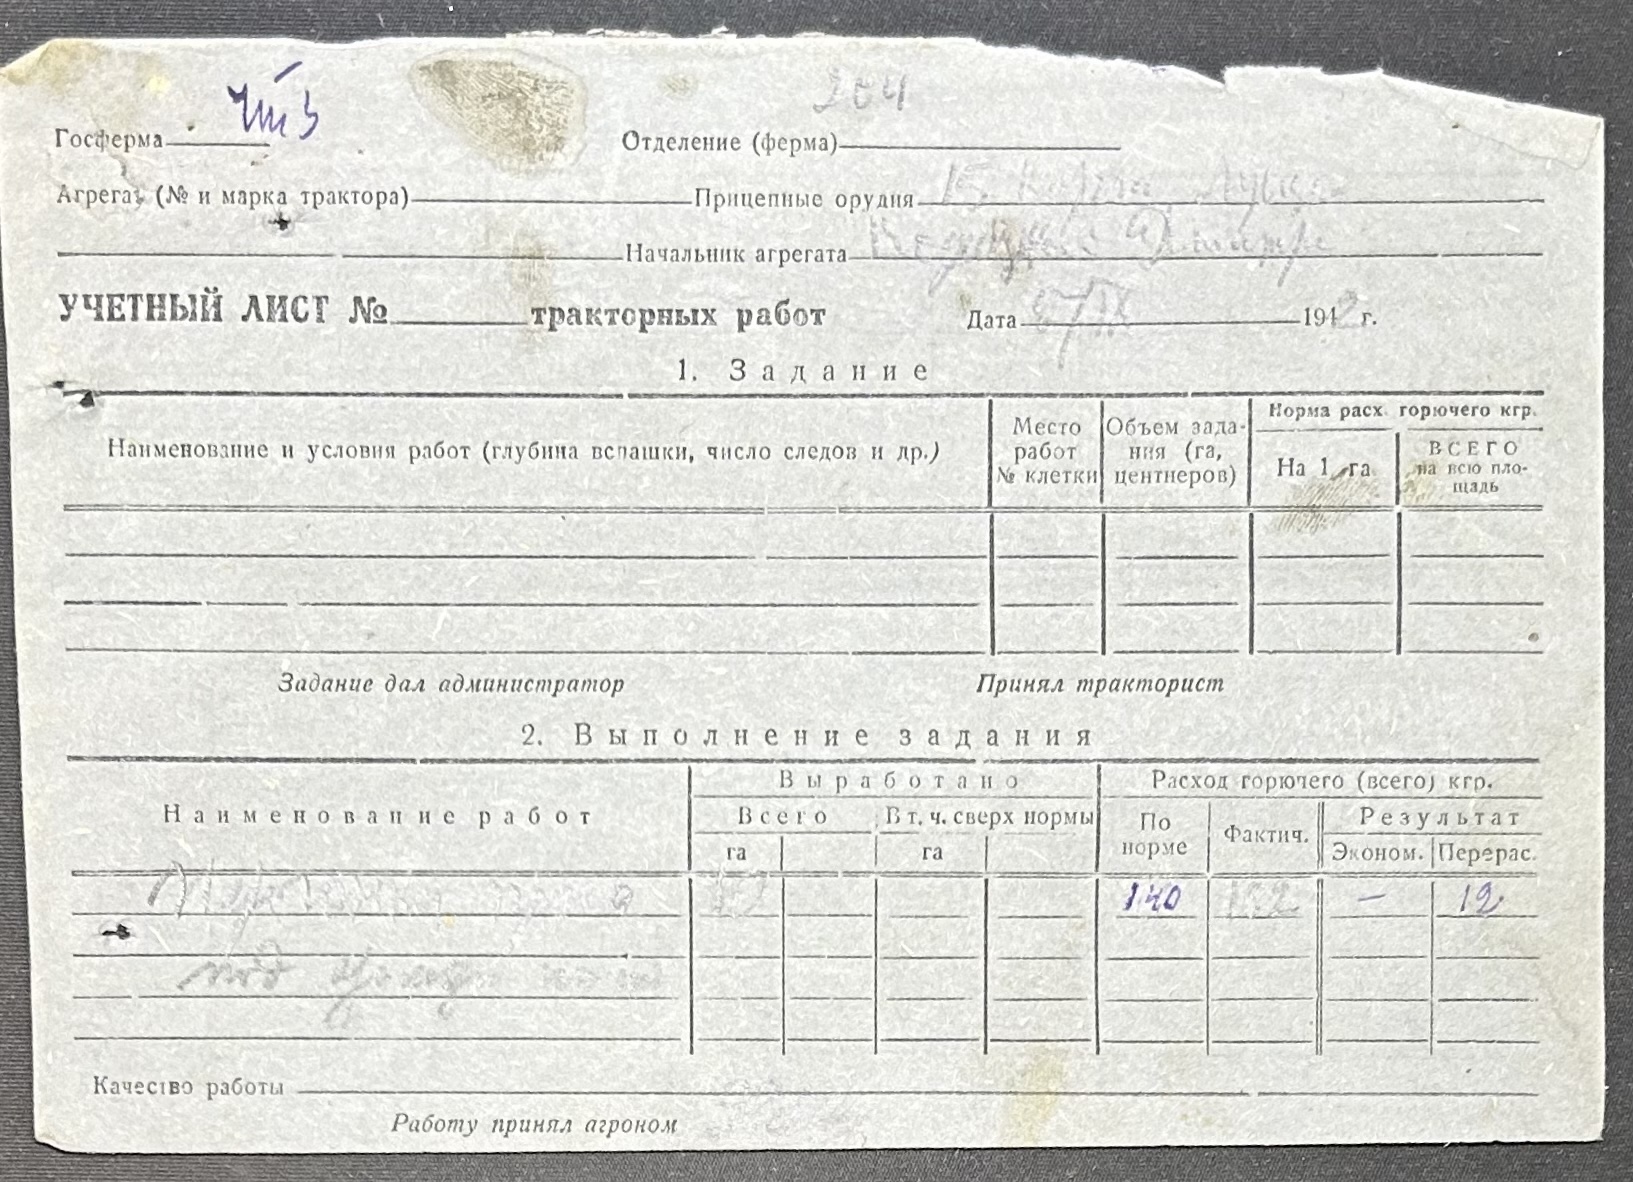 ЧТЗ 264
Госферма Отделение (ферма)
Агрегат (№ и марка трактора) Прицепные орудия
Начальник агрегата
УЧЕТНЫЙ ЛИСТ № тракторных работ Дата 194 г.
1. Задание
Наименование и условия работ (глубина вспашки, число следов и др.) Место работ № клетки Объем зада-ния (га, центнеров) Норма расх. горючего кгр.
На 1 га ВСЕГО на всю пло-щадь
Задание дал администратор Принял тракторист
2. Выполнение задания
Наименование работ Выработано Расход горючего (всего) кгр.
Всего В т. ч. сверх нормы По норме Фактич. Результат
га га Эконом. Перерас.
140 152 — 12
под
Качество работы
Работу принял агроном